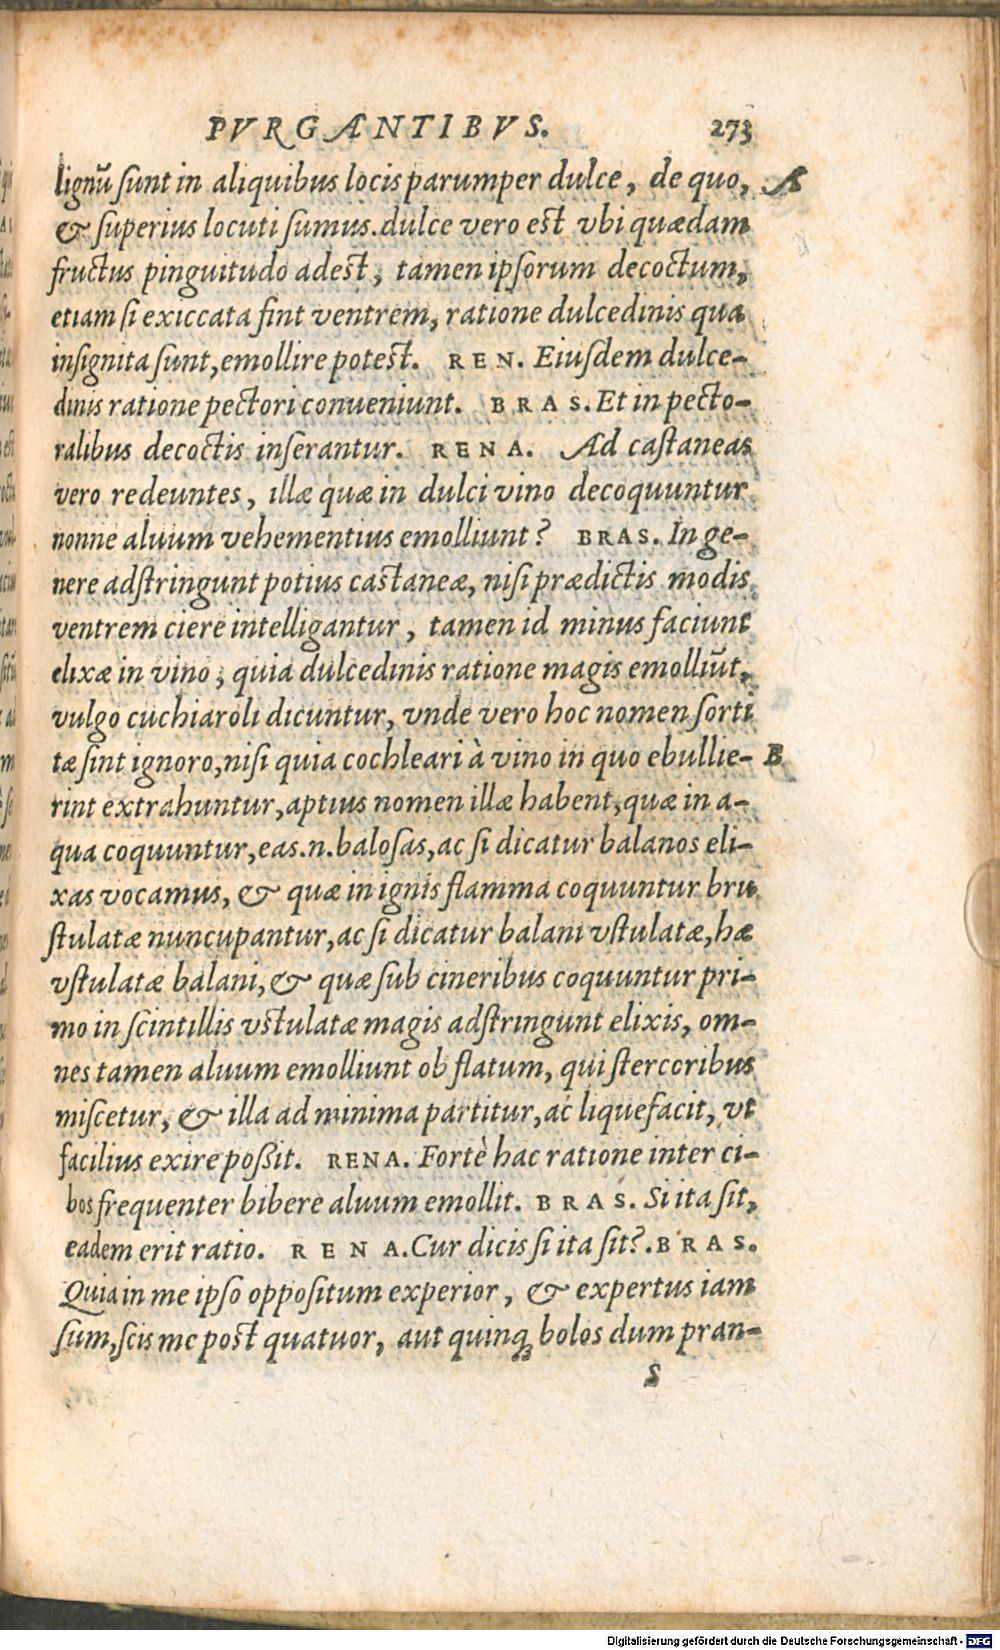 PVRGANTIBVS. 273
lignũ sunt in aliquibus locis parumper dulce, de quo, A
& superius locuti sumus. dulce vero est vbi quædam
fructus pinguitudo adest, tamen ipsorum decoctum,
etiam si exiccata sint ventrem, ratione dulcedinis qua
insignita sunt, emollire potest. REN. Eiusdem dulce-
dinis ratione pectori conueniunt. BRAS. Et in pecto-
ralibus decoctis inserantur. RENA. Ad castaneas
vero redeuntes, illæ quæ in dulci vino decoquuntur
nonne aluum vehementius emolliunt? BRAS. In ge-
nere adstringunt potius castaneæ, nisi prædictis modis
ventrem ciere intelligantur, tamen id minus faciunt
elixæ in vino; quia dulcedinis ratione magis emolliũt,
vulgo cuchiaroli dicuntur, vnde vero hoc nomen sorti
tæ sint ignoro, nisi quia cochleari à vino in quo ebullie- B
rint extrahuntur, aptius nomen illæ habent, quæ in a-
qua coquuntur, eas .n. balosas, ac si dicatur balanos eli-
xas vocamus, & quæ in ignis flamma coquuntur bru
stulatæ nuncupantur, ac si dicatur balani vstulatæ, hæ
vstulatæ balani, & quæ sub cineribus coquuntur pri-
mo in scintillis vstulatæ magis adstringunt elixis, om-
nes tamen aluum emolliunt ob flatum, qui stercoribus
miscetur, & illa ad minima partitur, ac liquefacit, vt
facilius exire poßit. RENA. Fortè hac ratione inter ci-
bos frequenter bibere aluum emollit. BRAS. Si ita sit,
eadem erit ratio. RENA. Cur dicis si ita sit?. BRAS.
Quia in me ipso oppositum experior, & expertus iam
sum, scis me post quatuor, aut quinq; bolos dum pran-
S
Digitalisierung gefördert durch die Deutsche Forschungsgemeinschaft - DFG